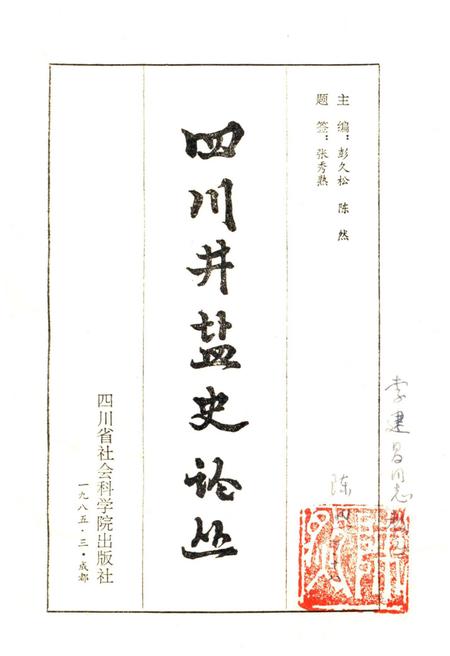 主编：彭久松 陈然
题签：张秀熟
四川井盐史论丛
四川省社会科学院出版社
一九八五·三·成都
李建昌同志
陈